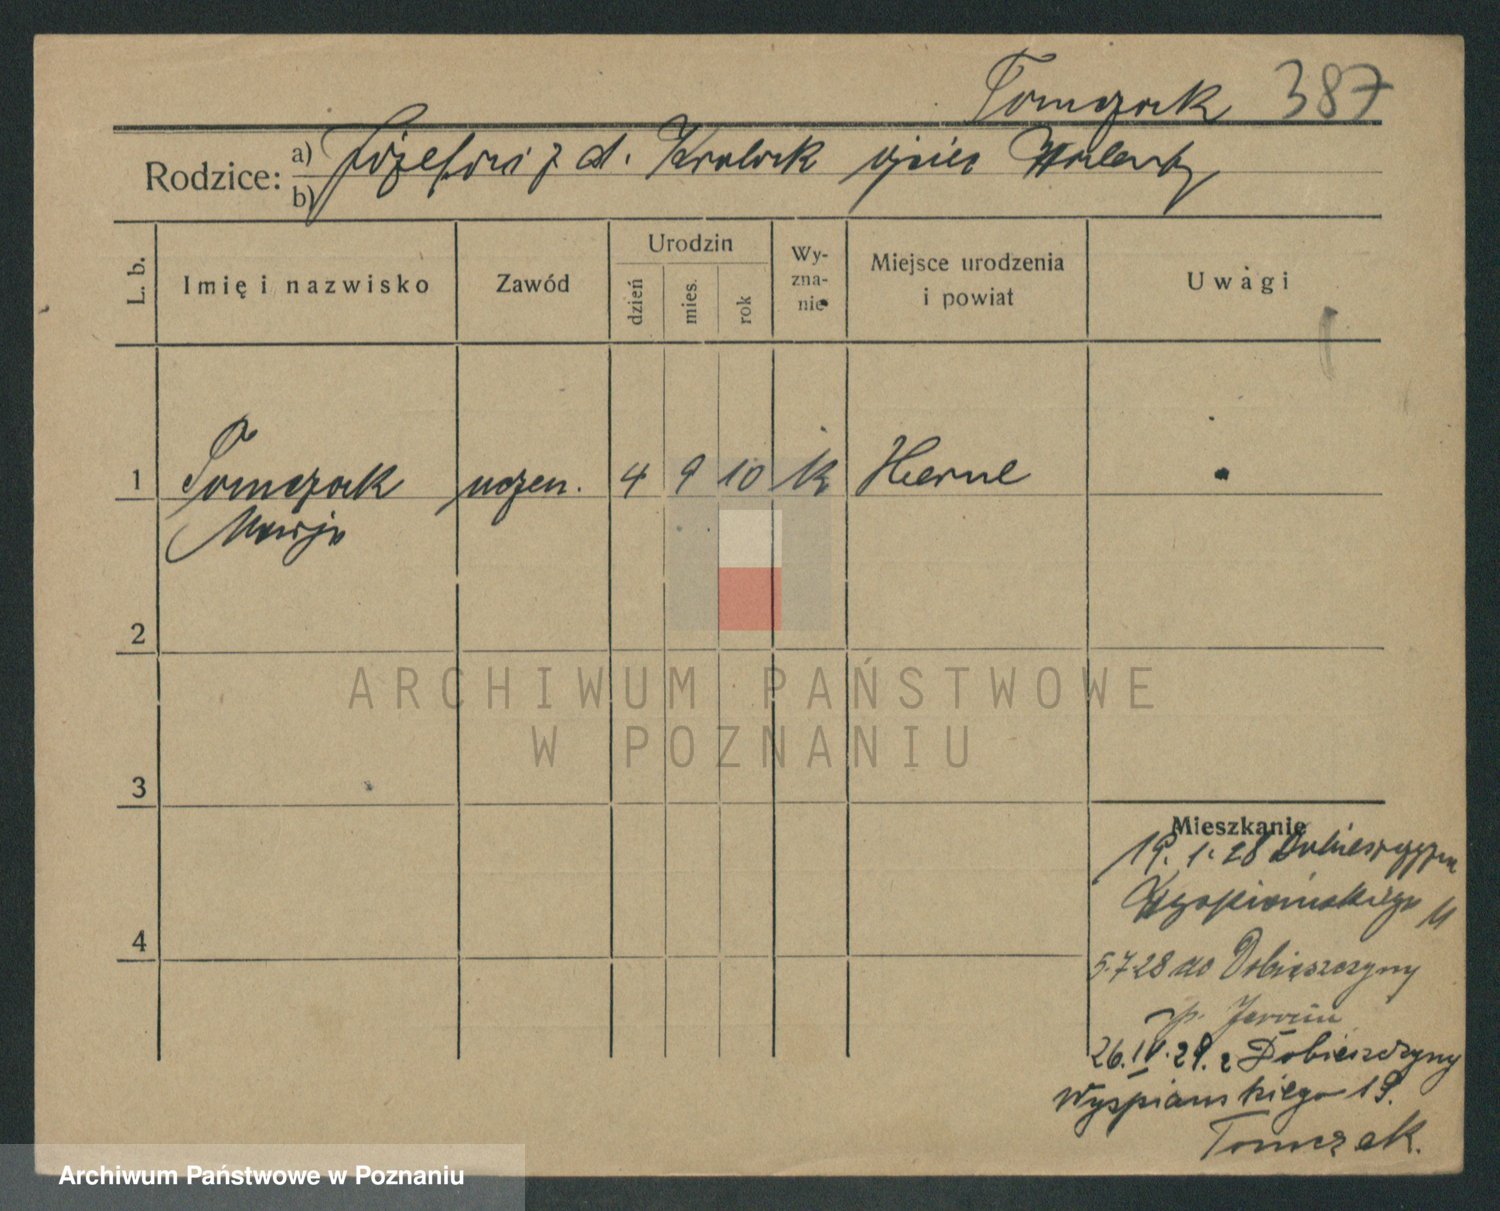 Tomczak 387
Rodzice: a) Józefowi z d. Kralak ojciec Walenty
b)
L. b.
Imię i nazwisko
Zawód
Urodzin
dzień
mies.
rok
Wy-
zna-
nie
Miejsce urodzenia
i powiat
Uwagi
1 Tomczak uczen. 4 9 10 k Herne
Marja
2
3
4
ARCHIWUM PAŃSTWOWE
W POZNANIU
Mieszkanie
19. 1. 28
Wyspiańskiego 11
5.7.28 do Dobieszczyny
p. Jarocin
26.IV.29. z Dobieszczyny
Wyspianskiego 19.
Tomczak.
Archiwum Państwowe w Poznaniu